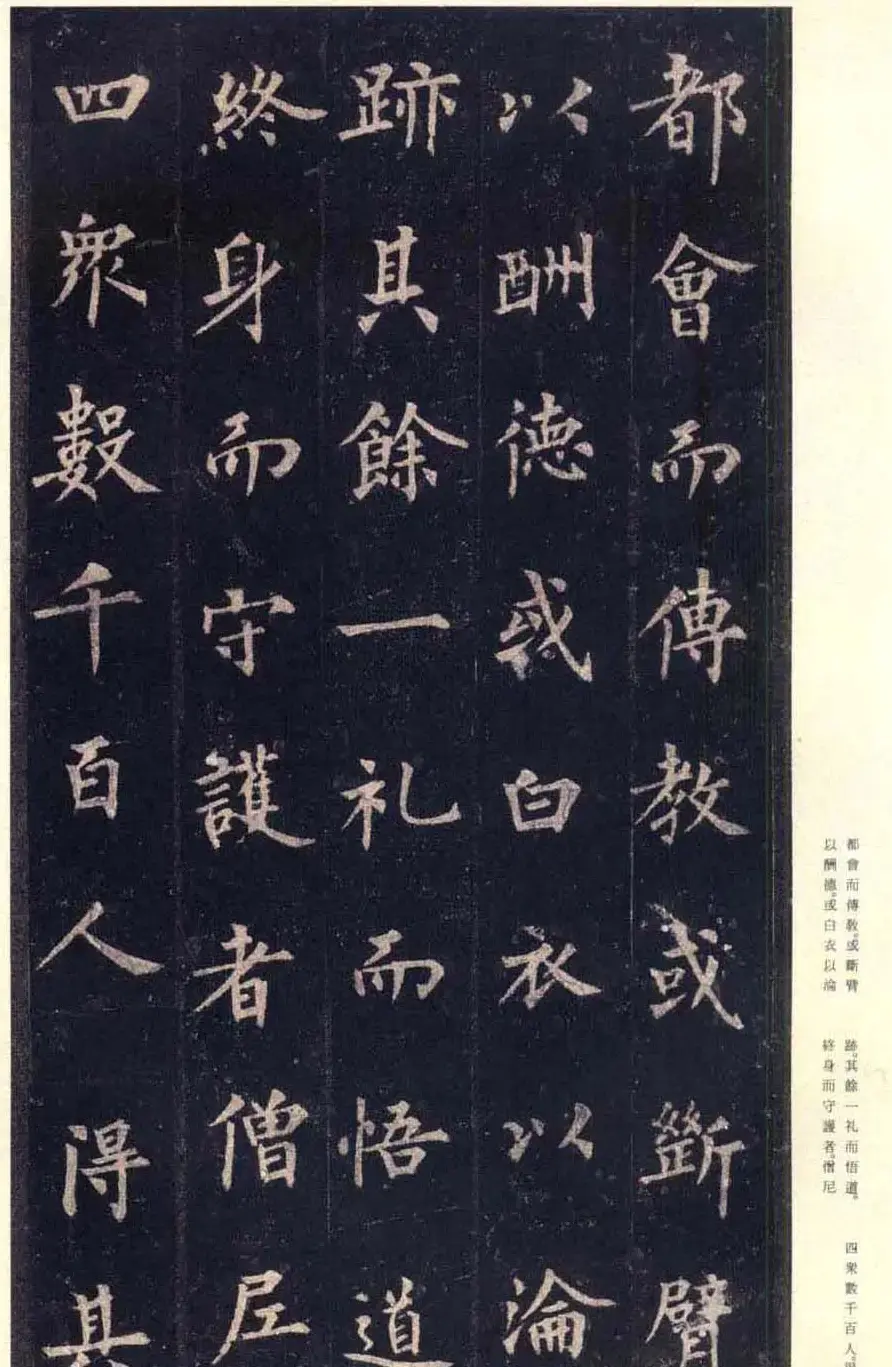 都會而傳教或斷臂
以酬德或白衣以淪
跡其餘一礼而悟道
終身而守護者僧尼
四衆數千百人得其
都會而傳教。或斷臂
以酬德。或白衣以淪
跡。其餘一礼而悟道。
終身而守護者。僧尼
四衆數千百人。得